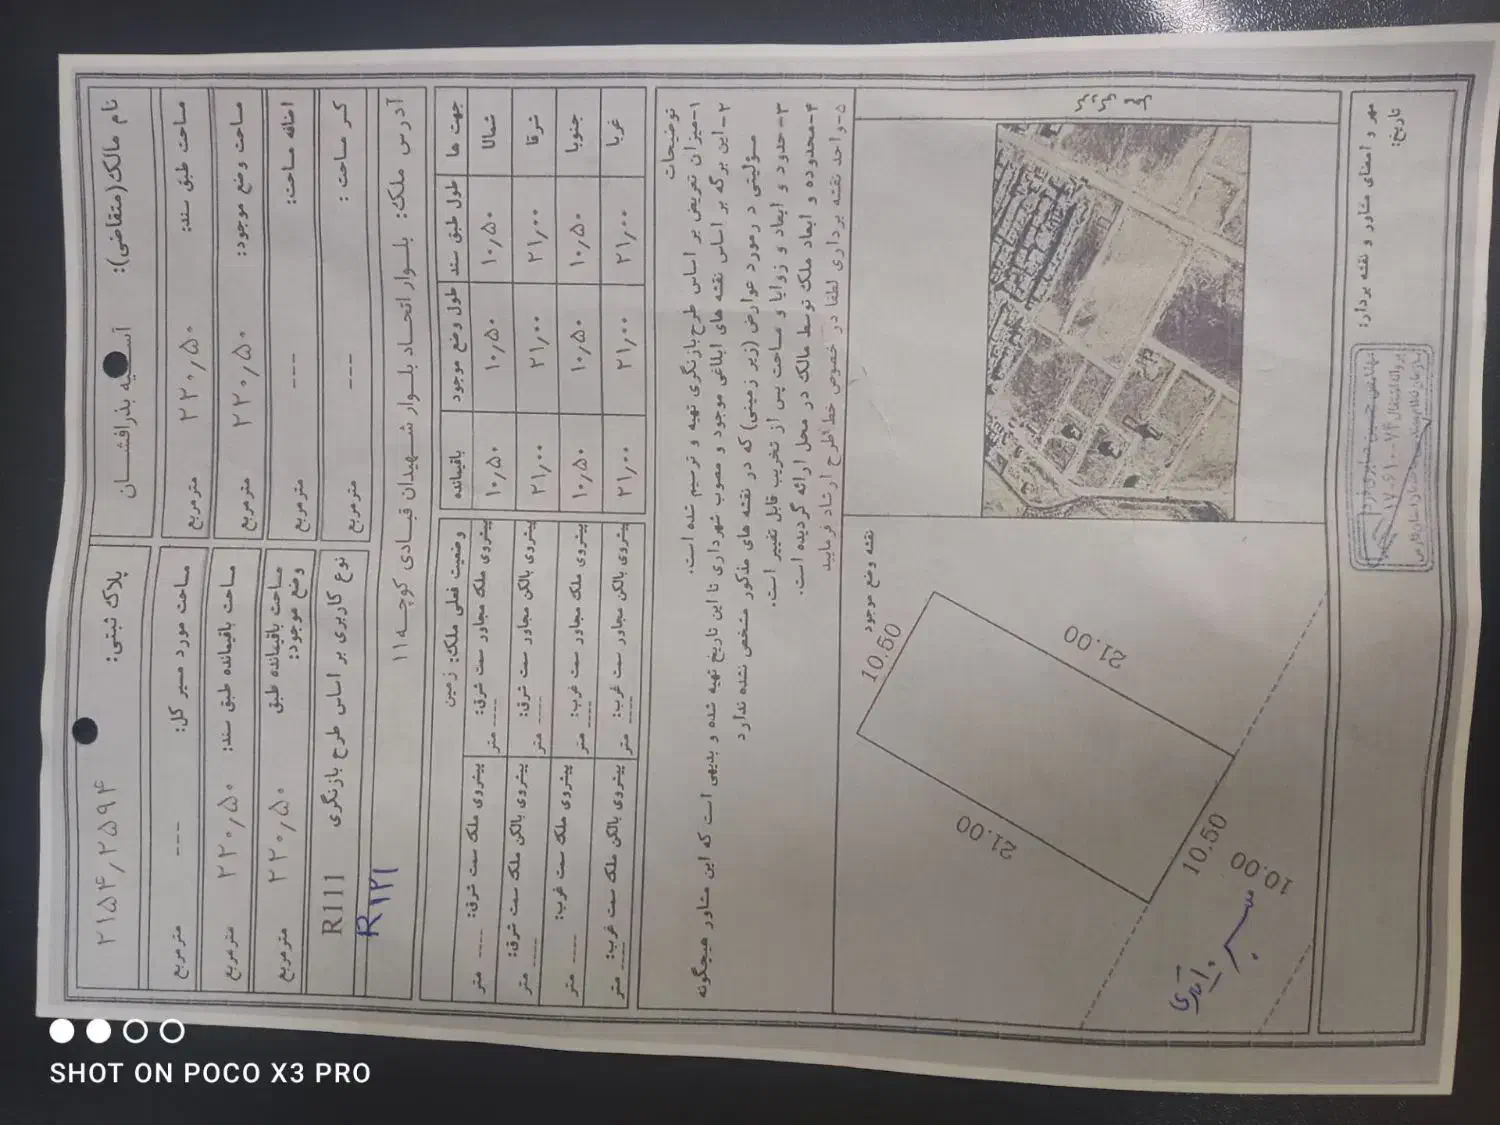 نام مالک(متقاضی): آسیه بذرافشان
پلاک ثبتی: ۲۱۵۴/۲۵۹۴
مساحت طبق سند: ۲۲۰/۵۰ مترمربع
مساحت مورد مسیر کل: --- مترمربع
مساحت وضع موجود: ۲۲۰/۵۰ مترمربع
مساحت باقیمانده طبق سند: ۲۲۰/۵۰ مترمربع
اضافه مساحت: --- مترمربع
مساحت باقیمانده طبق وضع موجود: ۲۲۰/۵۰ مترمربع
کسر مساحت: --- مترمربع
نوع کاربری بر اساس طرح بازنگری R111
R۱۲۱
آدرس ملک: بلوار اتحاد بلوار شهیدان قبادی کوچه ۱۱
جهت ها طول طبق سند طول وضع موجود باقیمانده
شمالا ۱۰/۵۰ ۱۰/۵۰ ۱۰/۵۰
شرقا ۲۱/۰۰ ۲۱/۰۰ ۲۱/۰۰
جنوبا ۱۰/۵۰ ۱۰/۵۰ ۱۰/۵۰
غربا ۲۱/۰۰ ۲۱/۰۰ ۲۱/۰۰
وضعیت فعلی ملک: زمین
پیشروی ملک مجاور سمت شرق: ---- متر
پیشروی ملک سمت شرق: ---- متر
پیشروی بالکن مجاور سمت شرق: ---- متر
پیشروی بالکن ملک سمت شرق: ---- متر
پیشروی ملک مجاور سمت غرب: ---- متر
پیشروی ملک سمت غرب: ---- متر
پیشروی بالکن مجاور سمت غرب: ---- متر
پیشروی بالکن ملک سمت غرب: ---- متر
توضیحات
۱-میزان تعریض بر اساس طرح بازنگری تهیه و ترسیم شده است.
۲-این برگه بر اساس نقشه های ابلاغی موجود و مصوب شهرداری تا این تاریخ تهیه شده و بدیهی است که این مشاور هیچگونه
مسؤلیتی در مورد عوارض (زیر زمینی) که در نقشه های مذکور مشخص نشده ندارد
۳-حدود و ابعاد و زوایا و مساحت پس از تخریب قابل تغییر است.
۴-محدوده و ابعاد ملک توسط مالک در محل ارائه گردیده است.
۵-واحد نقشه برداری لطفا در خصوص خط طرح ارشاد فرمایید
نقشه وضع موجود
10.50
21.00
21.00
10.50
10.00
مهر و امضای مشاور و نقشه بردار:
تاریخ: